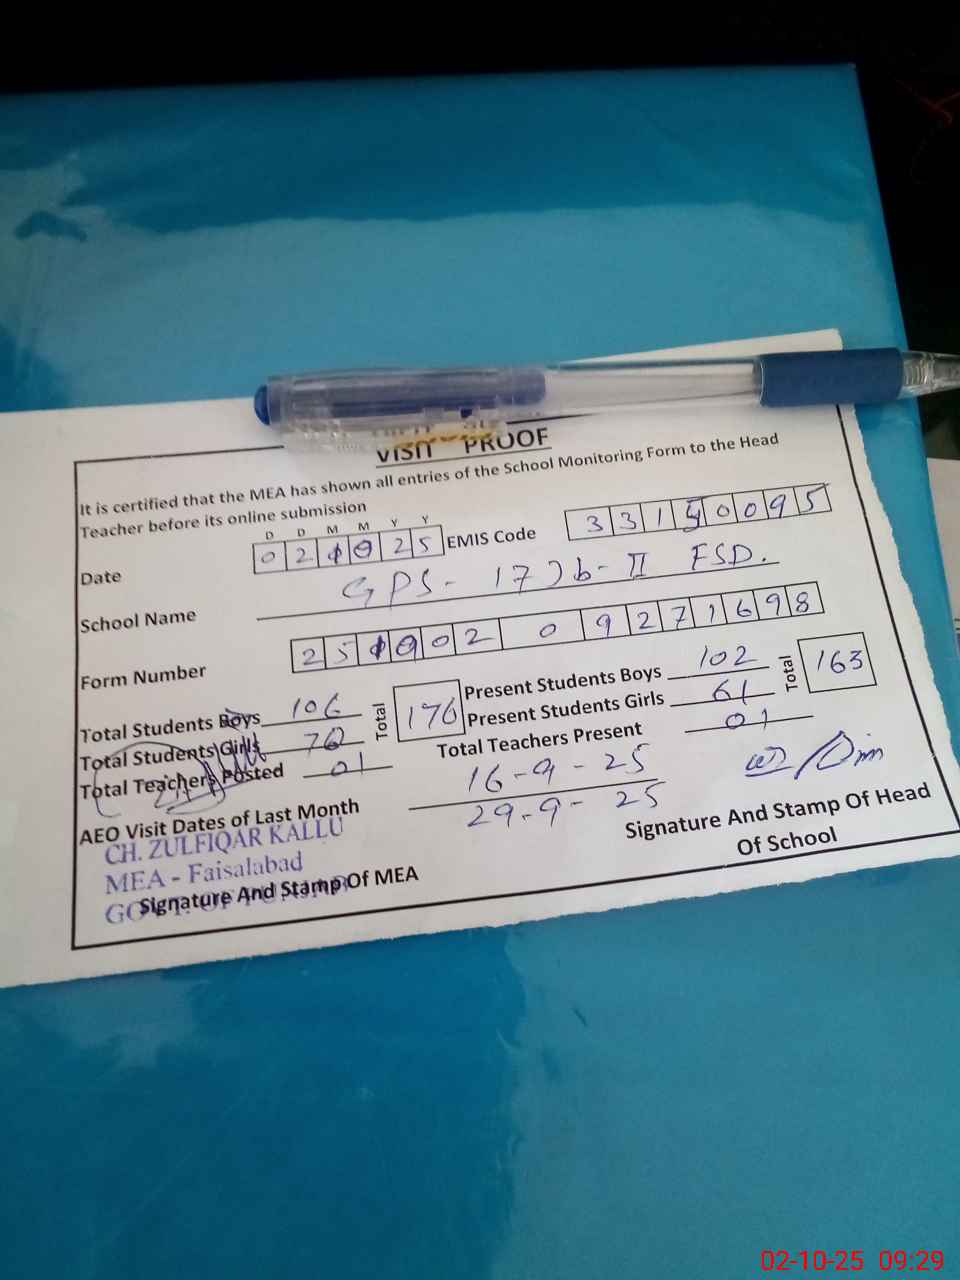 VISIT PROOF
It is certified that the MEA has shown all entries of the School Monitoring Form to the Head
Teacher before its online submission
D D M M Y Y
Date 02 10 25 EMIS Code 33150095
School Name GPS- 17 Jb-II FSD.
Form Number 25 10 02 0 9271698
Total Students Boys 106 Total 176 Present Students Boys 102 Total 163
Total Students Girls 70 Present Students Girls 61
Total Teachers Posted 01 Total Teachers Present 01
AEO Visit Dates of Last Month 16-9-25
29-9-25
CH. ZULFIQAR KALLU
MEA - Faisalabad
Signature And Stamp Of MEA
Signature And Stamp Of Head
Of School
02-10-25 09:29